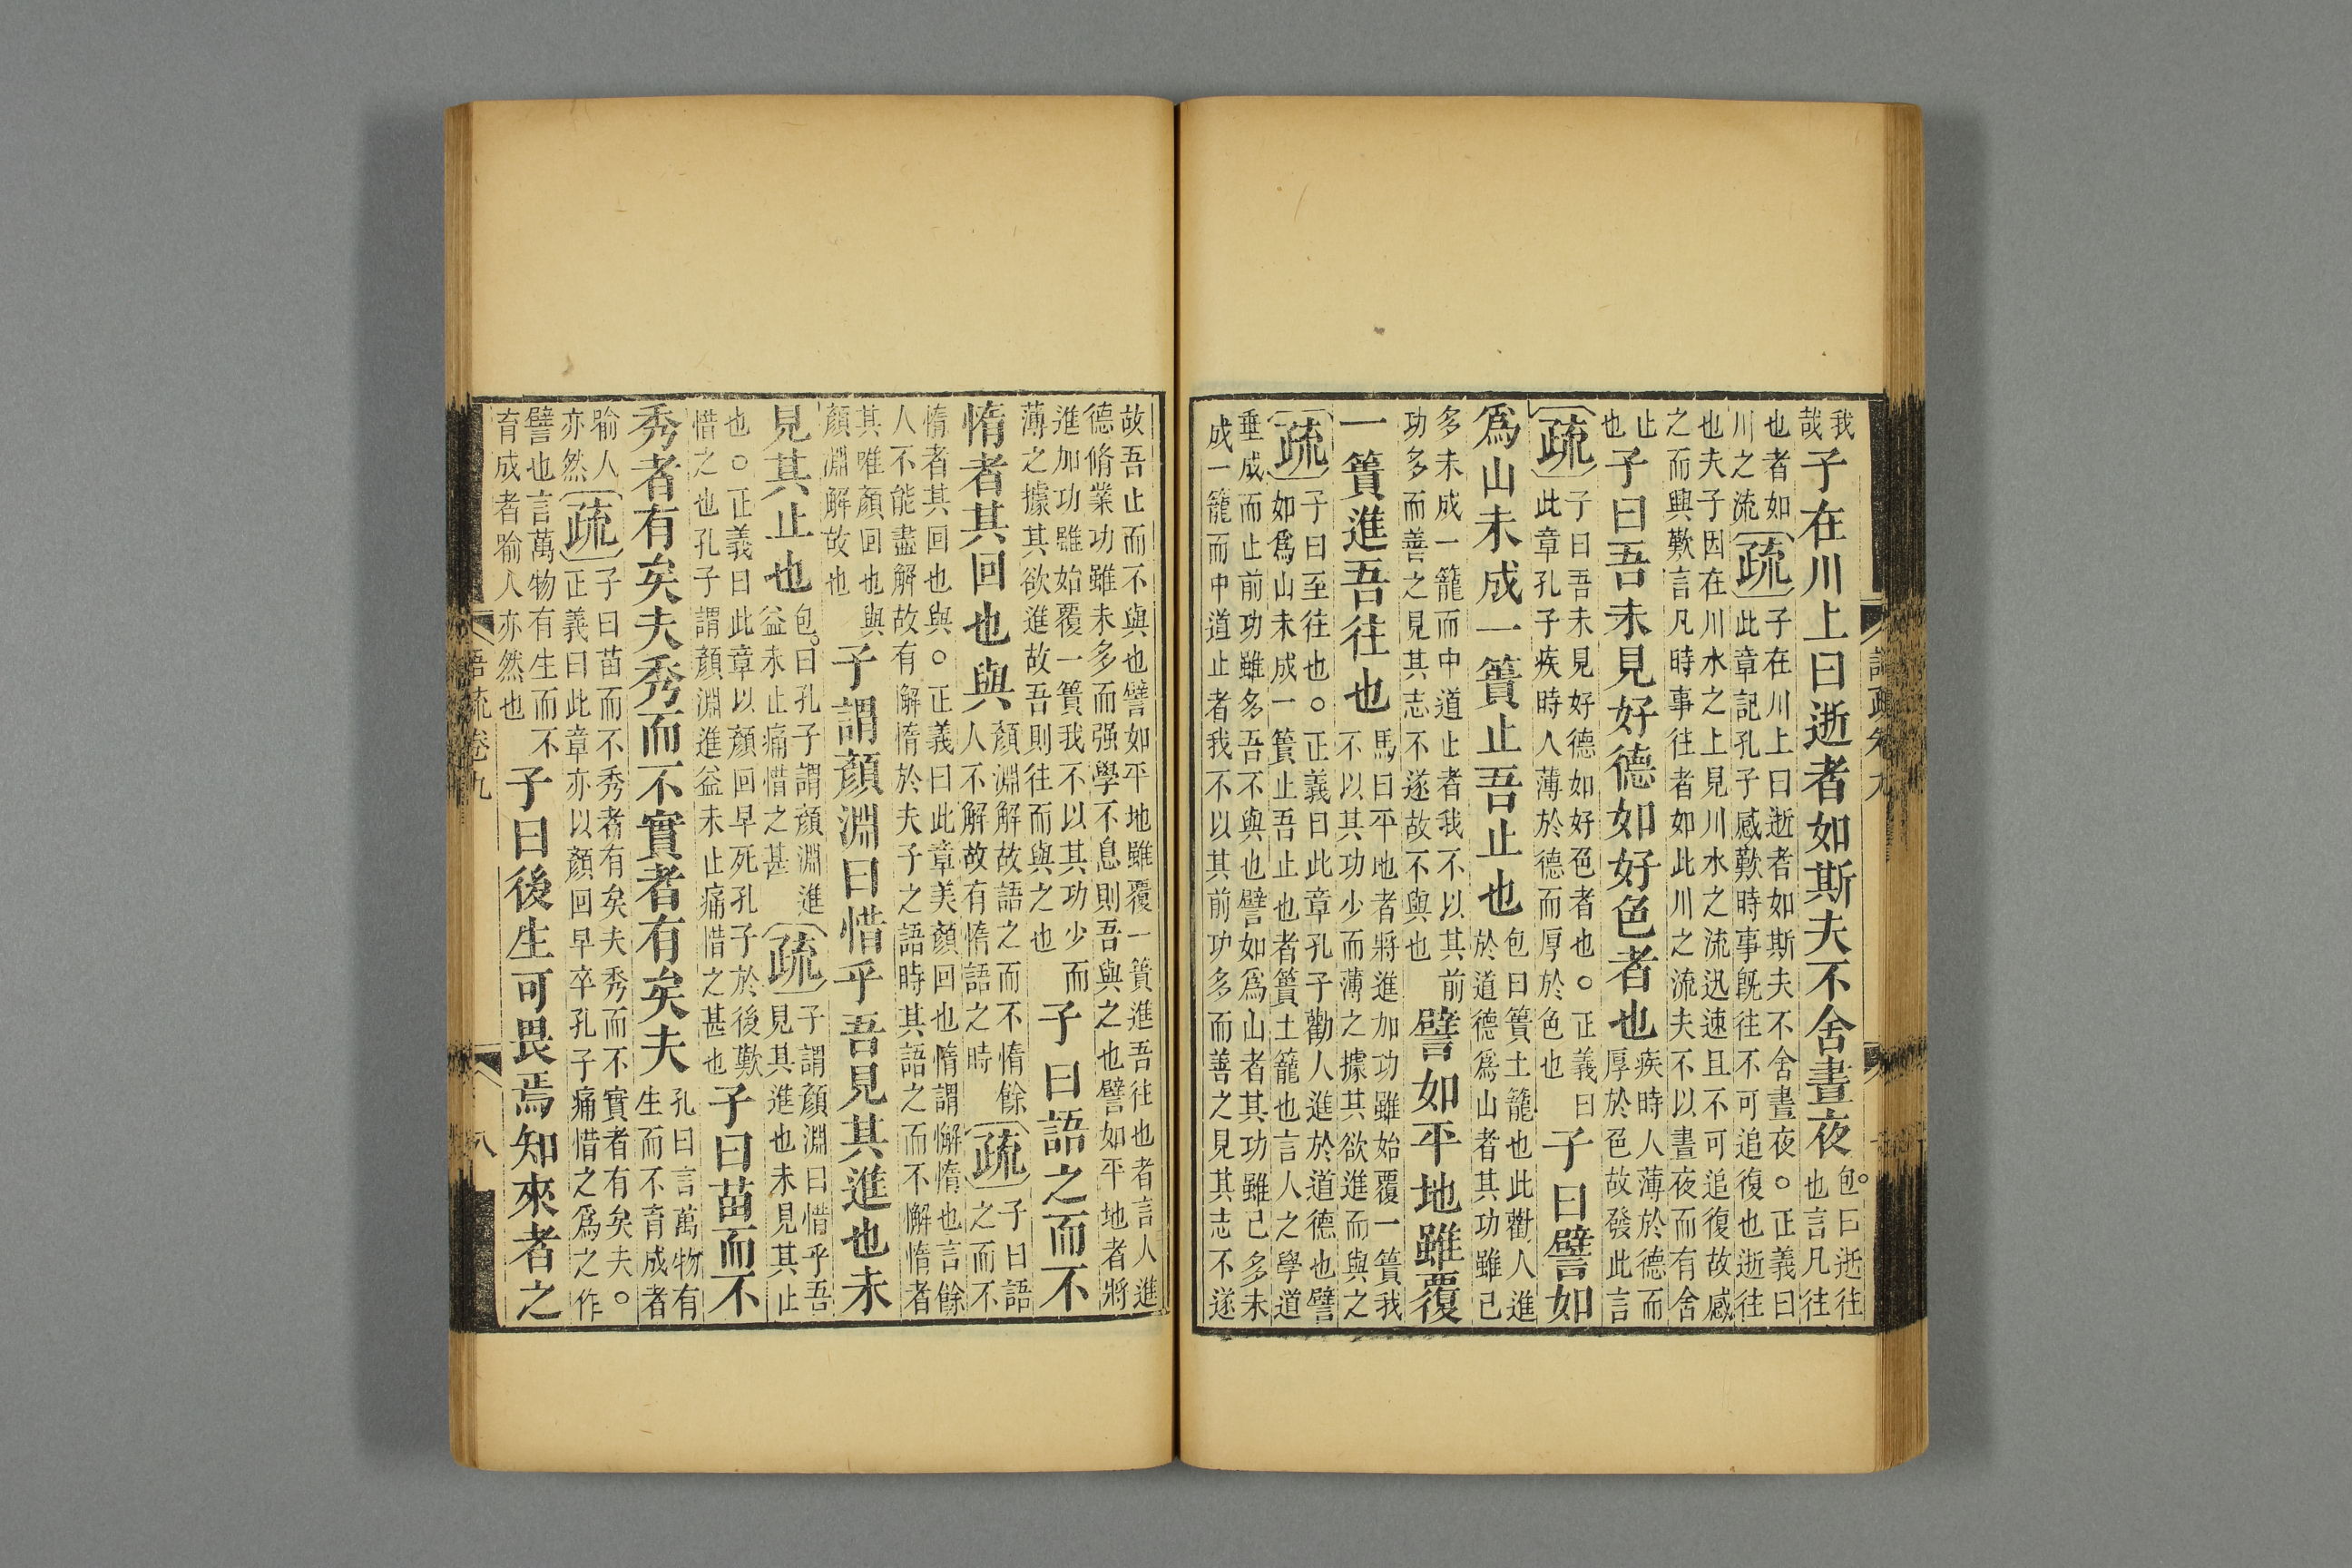 我哉子在川上曰逝者如斯夫不舍晝夜包曰逝往也言凡往
也者如川之流疏子在川上曰逝者如斯夫不舍晝夜○正義曰此章記孔子感歎時事旣往不可追復也逝往
也夫子因在川水之上見川水之流迅速且不可追復故感之而興歎言凡時事往者如此川之流夫不以晝夜而有舍
止也子曰吾未見好德如好色者也疾時人薄於德而厚於色故發此言
疏子曰吾未見好德如好色者也○正義曰此章孔子疾時人薄於德而厚於色也子曰譬如
爲山未成一簣止吾止也包曰簣土籠也此勸人進於道德爲山者其功雖已
多未成一籠而中道止者我不以其前功多而善之見其志不遂故不與也譬如平地雖覆
一簣進吾往也馬曰平地者將進加功雖始覆一簣我不以其功少而薄之據其欲進而與之
疏子曰至往也○正義曰此章孔子勸人進於道德也譬如爲山未成一簣止吾止也者簣土籠也言人之學道
垂成而止前功雖多吾不與也譬如爲山者其功雖已多未成一籠而中道止者我不以其前功多而善之見其志不遂
故吾止而不與也譬如平地雖覆一簣進吾往也者言人進德脩業功雖未多而强學不息則吾與之也譬如平地者將
進加功雖始覆一簣我不以其功少而薄之據其欲進故吾則往而與之也子曰語之而不
惰者其回也與顏淵解故語之而不惰餘人不解故有惰語之時疏子曰語之而不
惰者其回也與○正義曰此章美顏回也惰謂懈惰也言餘人不能盡解故有懈惰於夫子之語時其語之而不懈惰者
其唯顏回也與顏淵解故也子謂顏淵曰惜乎吾見其進也未
見其止也包曰孔子謂顏淵進益未止痛惜之甚疏子謂顏淵曰惜乎吾見其進也未見其止
也○正義曰此章以顏回早死孔子於後歎惜之也孔子謂顏淵進益未止痛惜之甚也子曰苗而不
秀者有矣夫秀而不實者有矣夫孔曰言萬物有生而不育成者
喻人亦然疏子曰苗而不秀者有矣夫秀而不實者有矣夫○正義曰此章亦以顏回早卒孔子痛惜之爲之作
譬也言萬物有生而不育成者喻人亦然也子曰後生可畏焉知來者之
語疏卷九
八